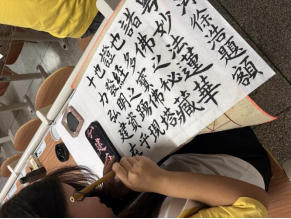 海徐浩題額
粵妙法蓮華
諸佛之秘藏
也多寶佛塔
證經之踴現
也發明資乎
十力弘建在